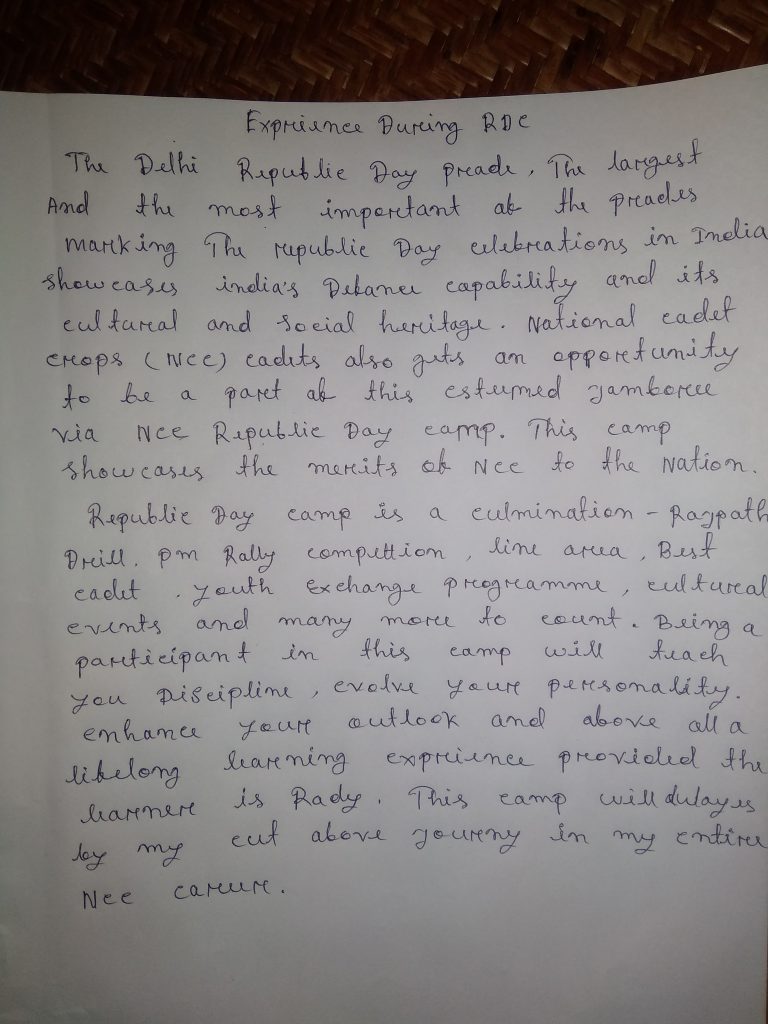 Exprience During RDC
The Delhi Republic Day preade, The largest
And the most important of the preades
marking The republic Day celebrations in India
showcases india's Defance capability and its
cultural and social heritage. National cadet
crops (NCC) cadets also gets an opportunity
to be a part of this estumed jamboree
via NCC Republic Day camp. This camp
showcases the merits of NCC to the Nation.
Republic Day camp is a culmination - Rajpath
Drill, pm Rally compettion, line area, Best
cadet. youth Exchange programme, cultural
events and many more to count. Being a
participant in this camp will teach
you Discipline, evolve your personality.
enhance your outlook and above all a
lifelong learning exprience provided the
learner is Rady. This camp will dulayes
by my cut above journy in my entire
NCC careur.